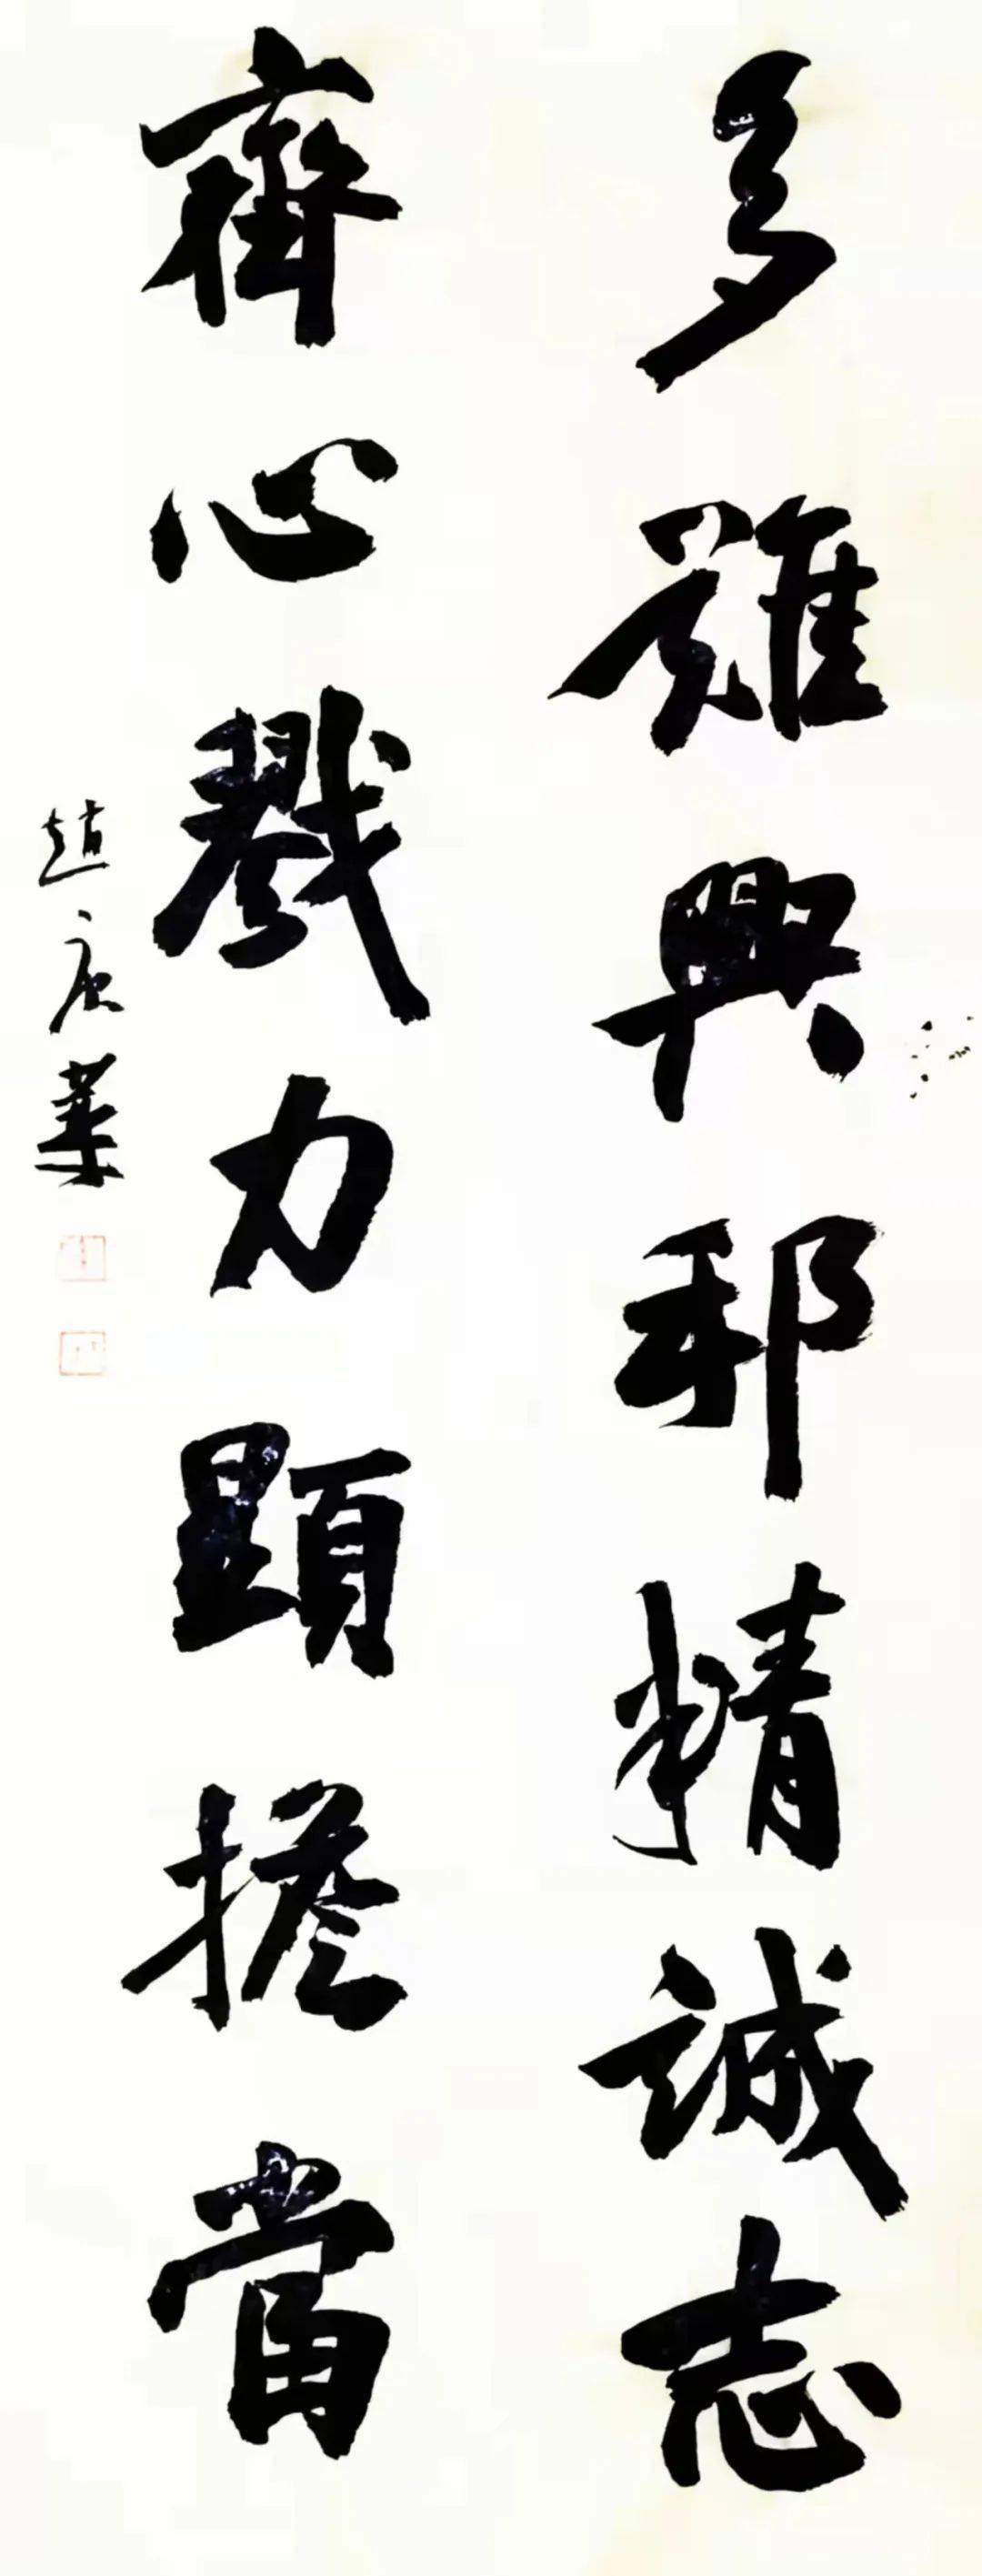 多難興邦精誠志
齊心戮力顯擔當
趙